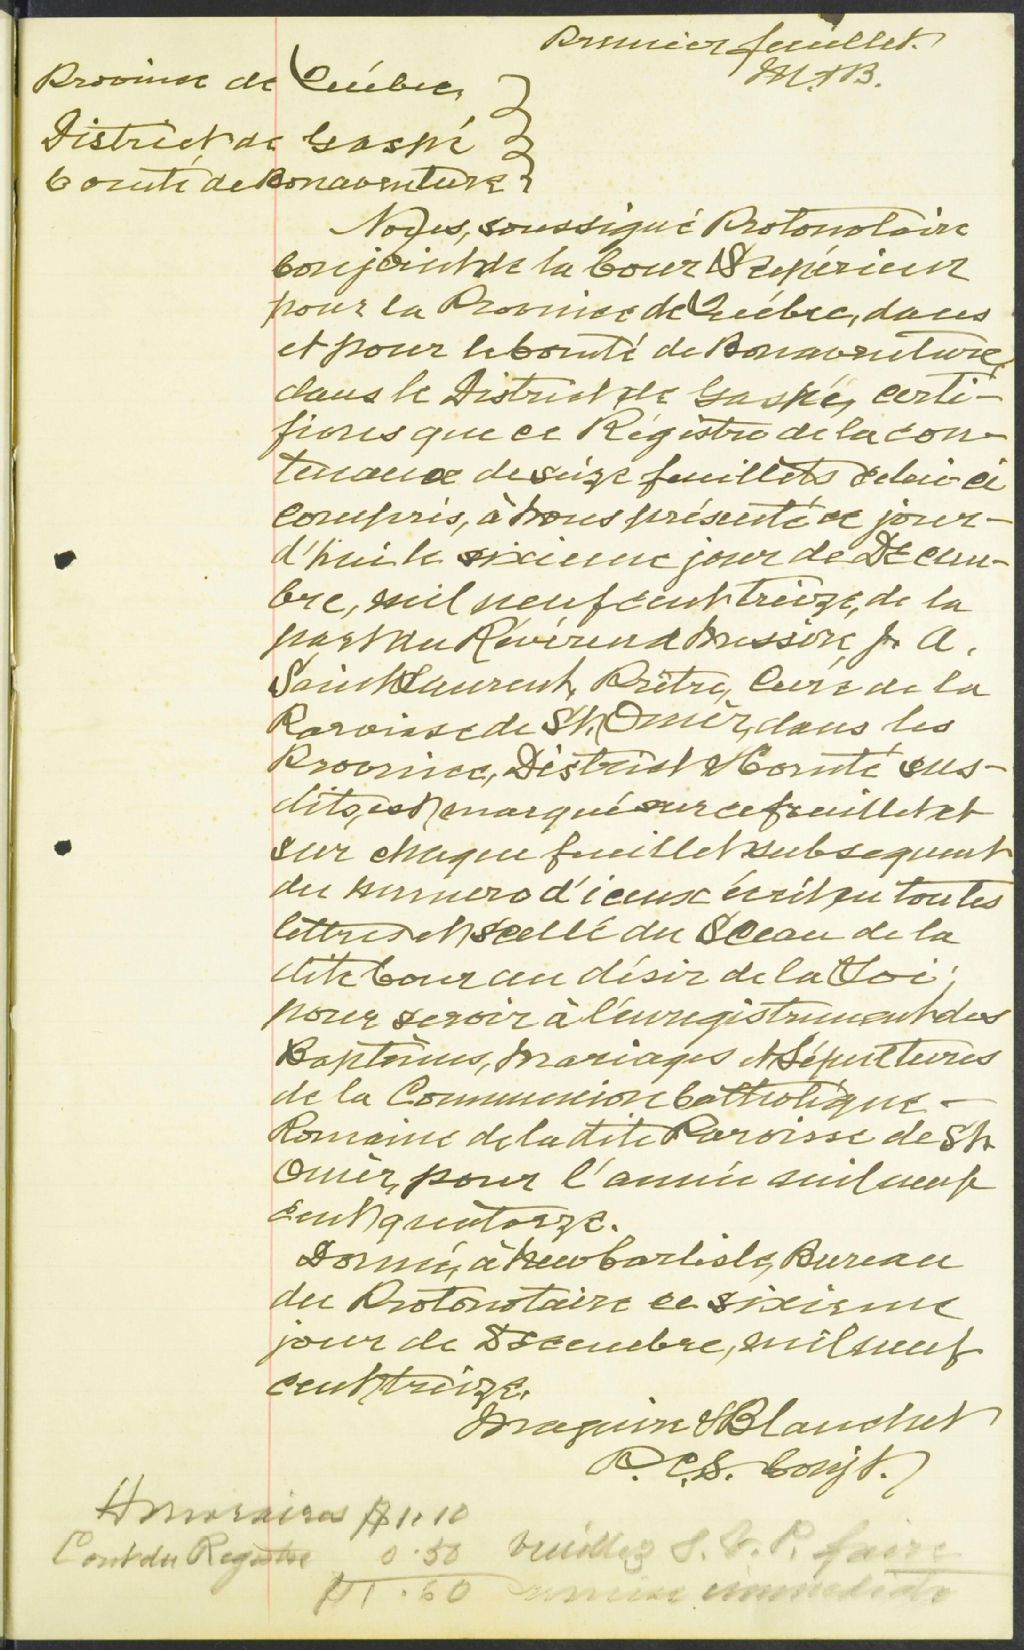 Premier feuillet.
M. & B.
Province de Québec,
District de Gaspé
Comté de Bonaventure
Nous, soussigné Protonotaire
Conjoint de la Cour Supérieur
pour la Province de Québec, dans
et pour le Comté de Bonaventure,
dans le District de Gaspé, certi-
fions que ce Régistre de la con-
tenance de seize feuillets celui-ci
compris, à nous présenté ce jour-
d'hui le sixième jour de Décem-
bre, mil neuf cent treize, de la
part du Révérend Messire J. A.
Saint Laurent, Prêtre, Curé de la
Paroisse de St. Omèr, dans les
Province, District & Comté sus-
dits, est marqué sur ce feuillet et
sur chaque feuillet subsequent
du numero d'iceux écrit en toutes
lettres et scellé du Sceau de la
dite Cour au désir de la Loi,
pour servir à l'enregistrement des
Baptêmes, Mariages et Sépultures
de la Communion Catholique -
Romaine de la dite Paroisse de St.
Omèr, pour l'année mil neuf
cent quatorze.
Donné, à New Carlisle, Bureau
du Protonotaire ce sixième
jour de Décembre, mil neuf
cent treize.
Maguire & Blanchet
P. C. S. Conjt.
Honoraires $1.10
Cout du Registre 0.50 Veuillez S. V. P. faire
$1.60 remise immediate